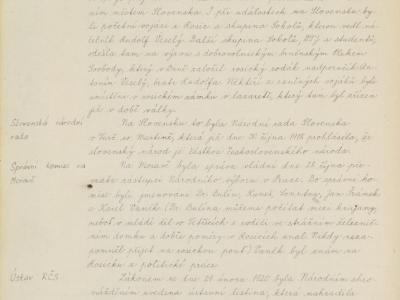 ním místem Slovenska. I při událostech na Slovensku by-
li početní vojáci z Rosic a skupina Sokolů, kterou vedl ná-
čelník Rudolf Veselý. Další skupina Sokolů, DTJ a studentů,
odešla tam na výzvu s dobrovolnickým brněnským Plukem
Svobody, který v Brně založil rosický rodák nadporučík
Veselý, bratr Rudolfa. Někteří z raněných vojáků byli
umístěni v rosickém zámku v lazaretě, který tam byl zřízen
již v době války.
Slovenská národní rada
Na Slovensku to byla Národní rada Slovenska
v Turč. sv. Martině, která již dne 30. října 1918 prohlásila, že
slovenský národ je částkou československého národa.
Správní komise na Moravě
Na Moravě byla správa vládní dnem 28. října pře-
vzata zástupci Národního výboru v Praze. Do správní ko-
mise byli jmenováni Dr. Bulín, Kuneš, Sonntag, Jan Šrámek
a Karel Vaněk. (Dr. Bulína můžeme počítat mezi krajany,
neboť v mládí žil v Tetčicích s rodiči ve strážním železnič-
ním domku a dobře poměry v Rosicích znal. Nikdy neza-
pomněl přijet na rosickou pouť.) Vaněk byl znám na
Rosicku z politické práce.
Ústav RČS
Zákonem ze dne 29. února 1920 byla Národním shro-
mážděním uvedena ústavní listina, která nahradila